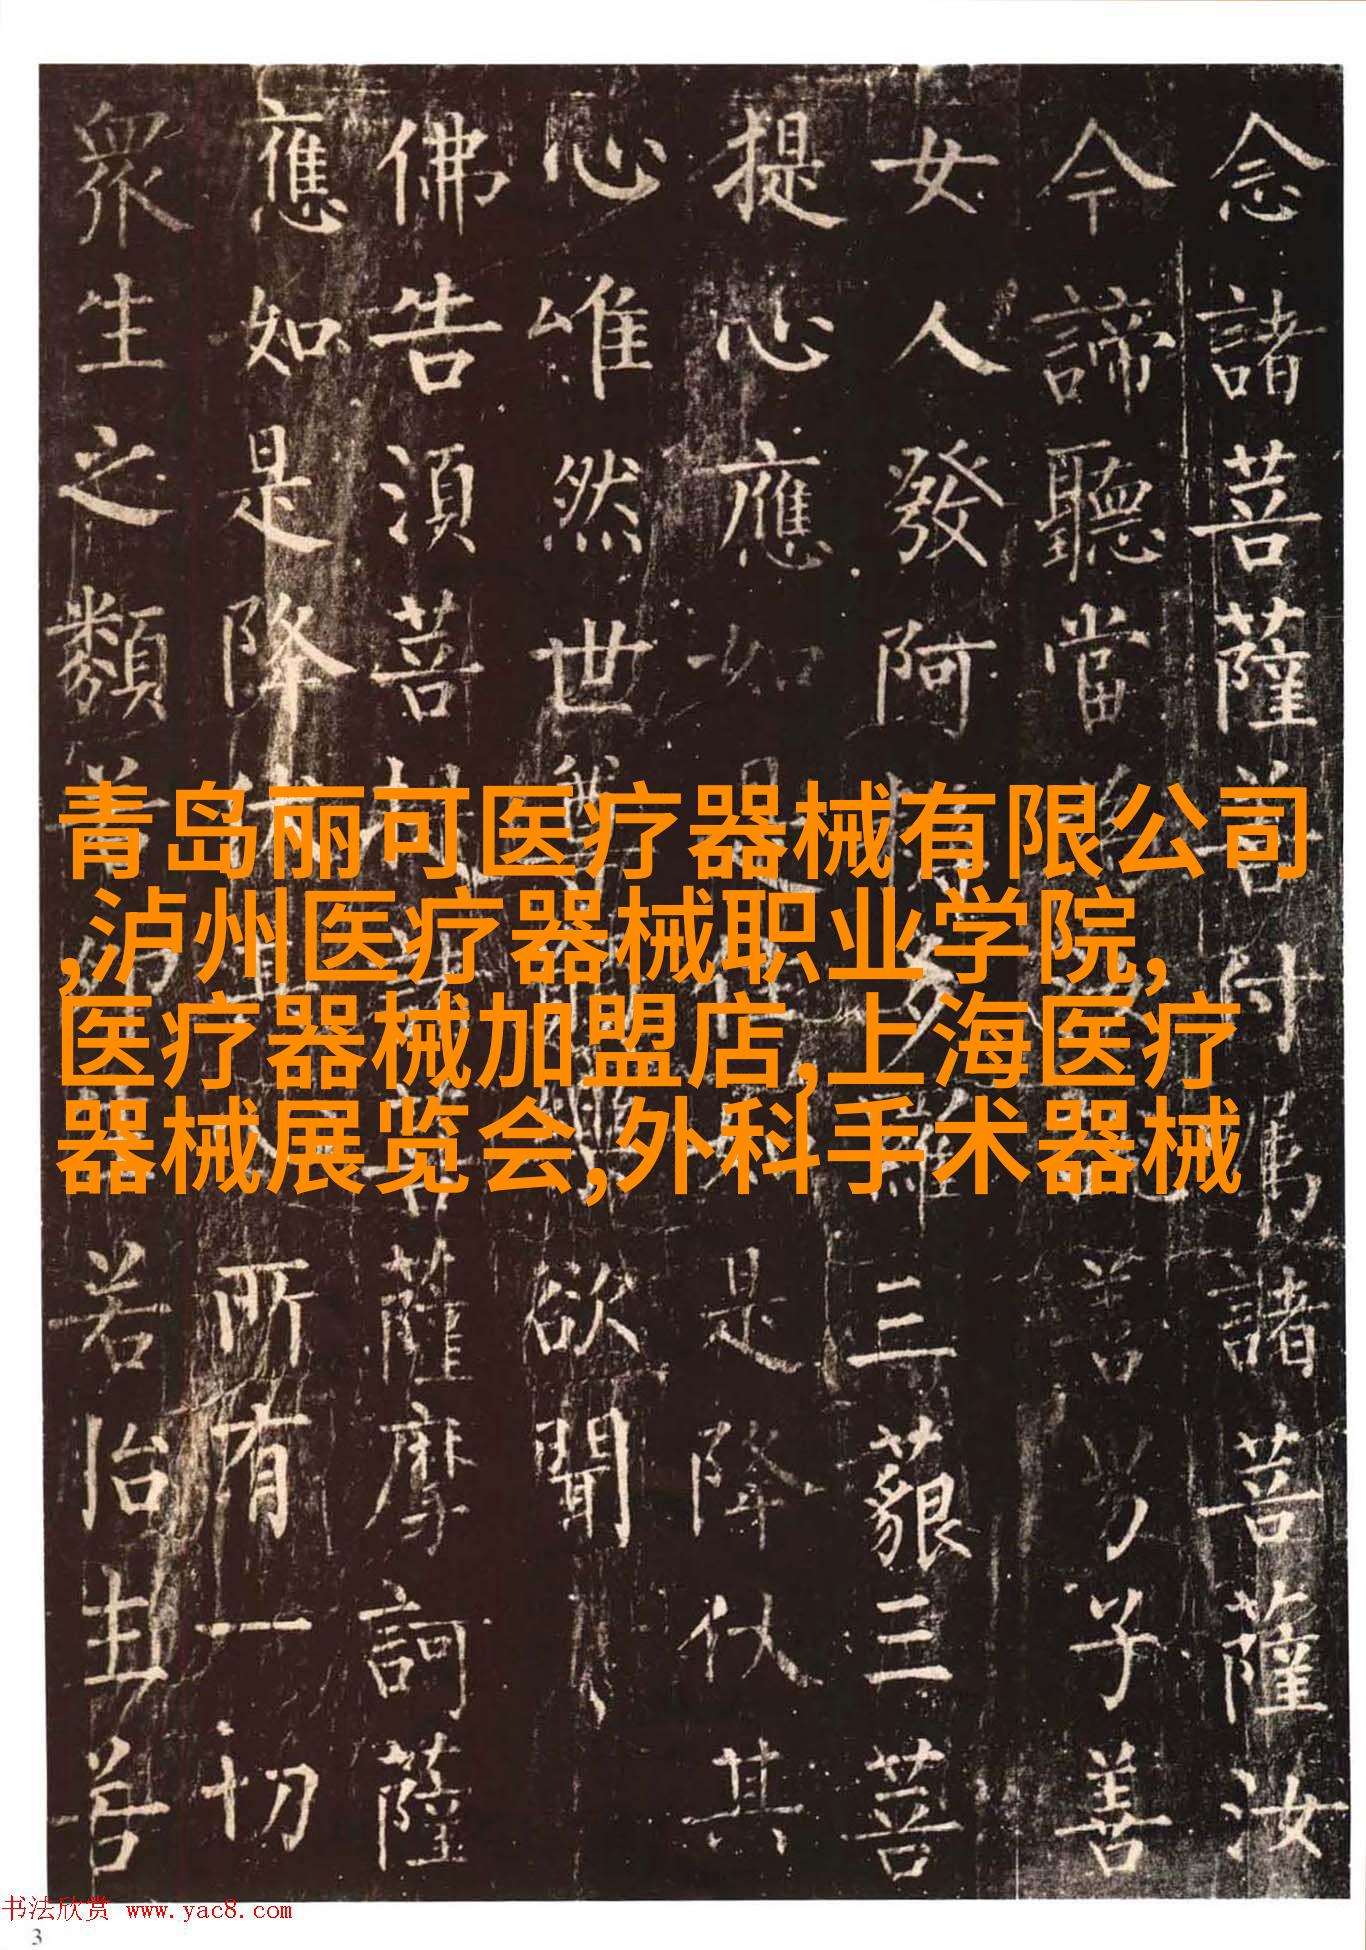 念諸菩薩付諸菩薩汝
今諦聽當善男子善
女人發阿三藐三菩
提心應如是降伏其
心唯然世欲聞
佛告須菩薩摩訶薩
應如是降所有一切
衆生之類若胎生若
青岛丽可医疗器械有限公司
,泸州医疗器械职业学院,
医疗器械加盟店,上海医疗
器械展览会,外科手术器械
书法欣赏 www.yac8.com
3